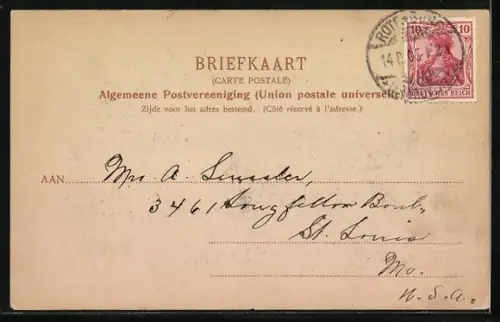 BRIEFKAART
(CARTE POSTALE)
Algemeene Postvereeniging (Union postale universe
Zijde voor het adres bestemd. (Côté réservé à l'adresse.)
10 10
REICH
AAN Mrs. A.
3461 Longfellow Boulv.
St. Louis
Mo.
U.S.A.